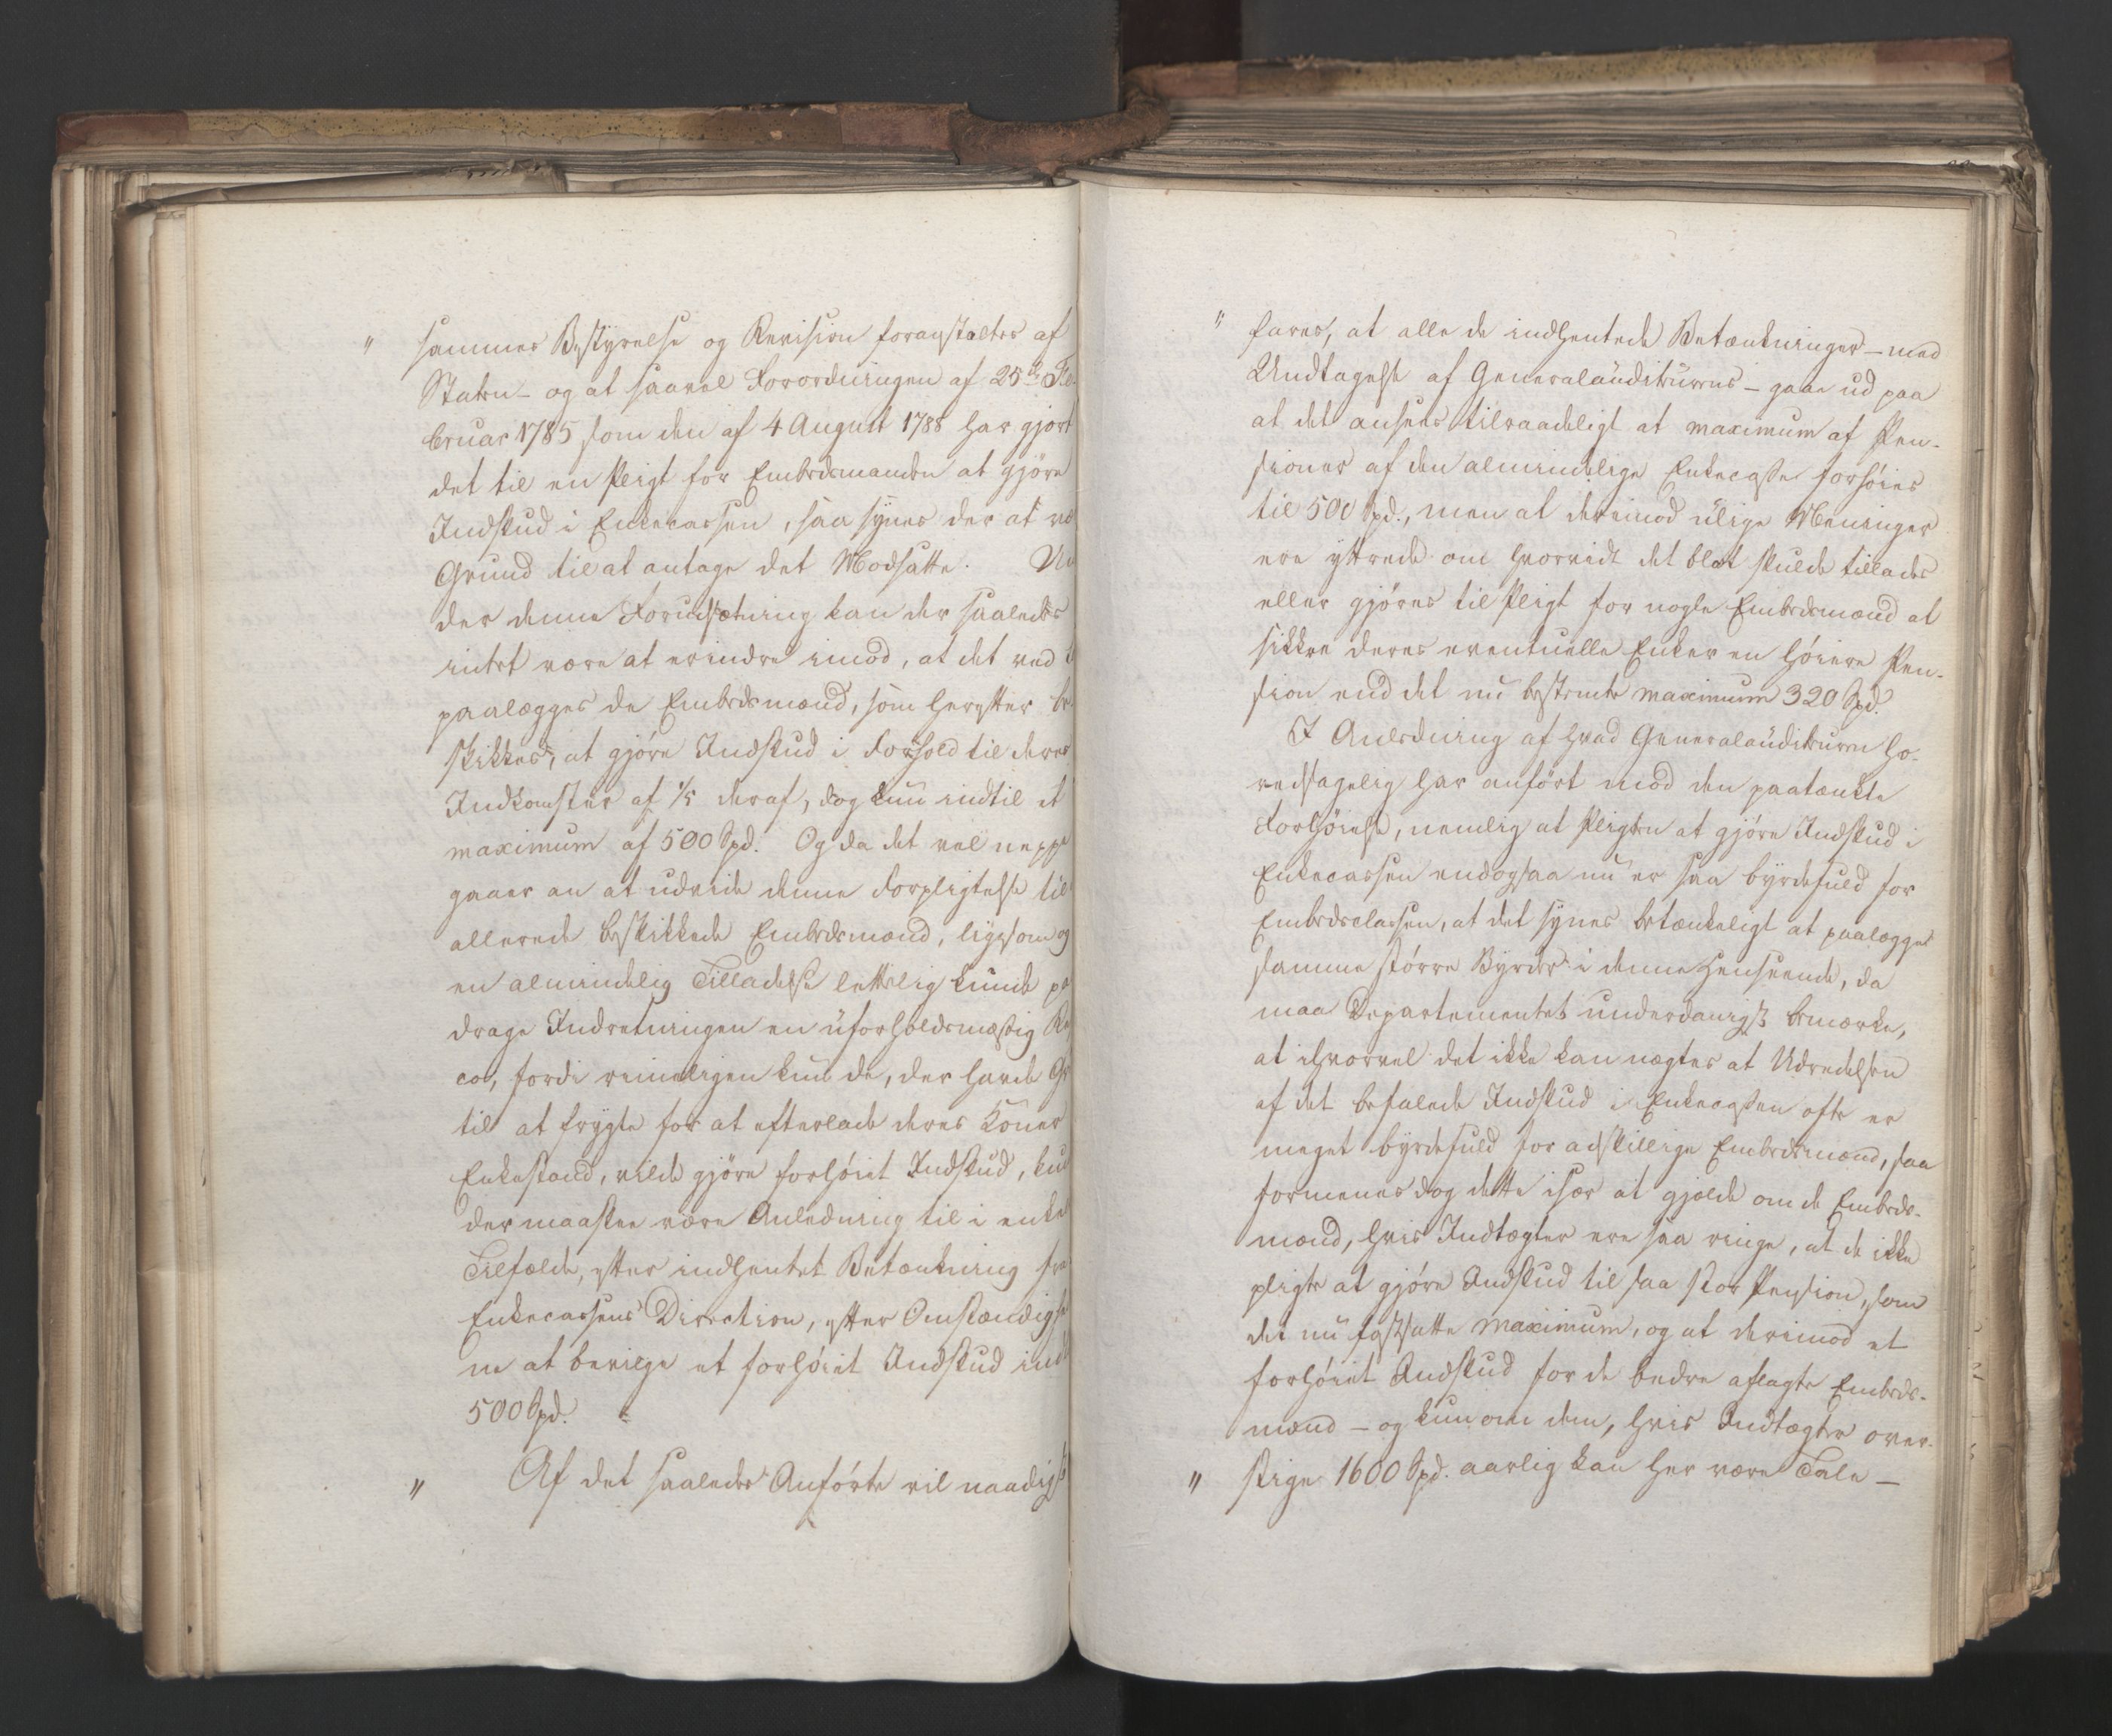 " sammes Bestyrelse og Revision foranstaltes af
Staten – og at saavel Forordningen af 25de Fe-
bruar 1785 som den af 4 August 1788 har gjort
det til en Pligt for Embedsmanden at gjøre
Indskud i Enkecassen, saa synes der at væ
Grund til at antage det Modsatte. Un
der denne Forudsætning kan der saaledes
intet være at erindre imod, at det ved
paalægges de Embedsmænd, som herefter be
skikkes, at gjøre Indskud i Forhold til deres
Indkomster af 1/5 deraf, dog kun indtil et
maximum af 500 Spd. Og da det vel neppe
gaaer an at udvide denne Forpligtelse til
allerede beskikkede Embedsmænd, ligesom og
en almindelig Tilladelse lettelig kunde paa
drage Indretningen en uforholdsmæssig Ri
co, fordi rimeligen kun de, der havde Gr
til at frygte for at efterlade deres Koner
Enkestand, vilde gjøre forhøiet Indskud, kun
der maaskee være Anledning til i enkel
Tilfælde, efter indhentet Betænkning fra
Enkecassens Direction, efter Omstændighe
ne at bevilge et forhøiet Indskud ind
500 Spd.
" Af det saaledes Anførte vil naadigst
" fares, at alle de indhentede Betænkninger – med
Undtagelse af Generalauditeurens – gaae ud paa
at det ansees tilraadeligt at maximum af Pen-
sioner af den almindelige Enkecasse forhøies
til 500 Spd., men at derimod ulige Meninger
ere yttrede om hvorvidt det blot skulde tillades
eller gjøres til Pligt for nogle Embedsmænd at
sikkre deres eventuelle Enker en høiere Pen-
sion end det nu bestemte maximum 320 Spd.
I Anledning af hvad Generalauditeuren ho-
vedsagelig har anført mod den paatænkte
Forhøielse, nemlig at Pligten at gjøre Indskud i
Enkecassen endogsaa nu er saa byrdefuld for
Embedsclassen, at det synes betænkeligt at paalægge
samme større Byrder i denne Henseende, da
maa Departementet underdanigst bemærke,
at ihvorvel det ikke kan nægtes at Udredelsen
af det befalede Indskud i Enkecassen ofte er
meget byrdefuld for adskillige Embedsmænd, saa
formenes dog dette især at gjelde om de Embeds-
mænd, hvis Indtægter ere saa ringe, at de ikke
pligte at gjøre Indskud til saa stor Pension, som
det nu fastsatte maximum, og at derimod et
forhøiet Indskud for de bedre aflagte Embeds-
mænd – og kun om dem, hvis Indtægter over-
" stige 1600 Spd. aarlig kan her være Tale –